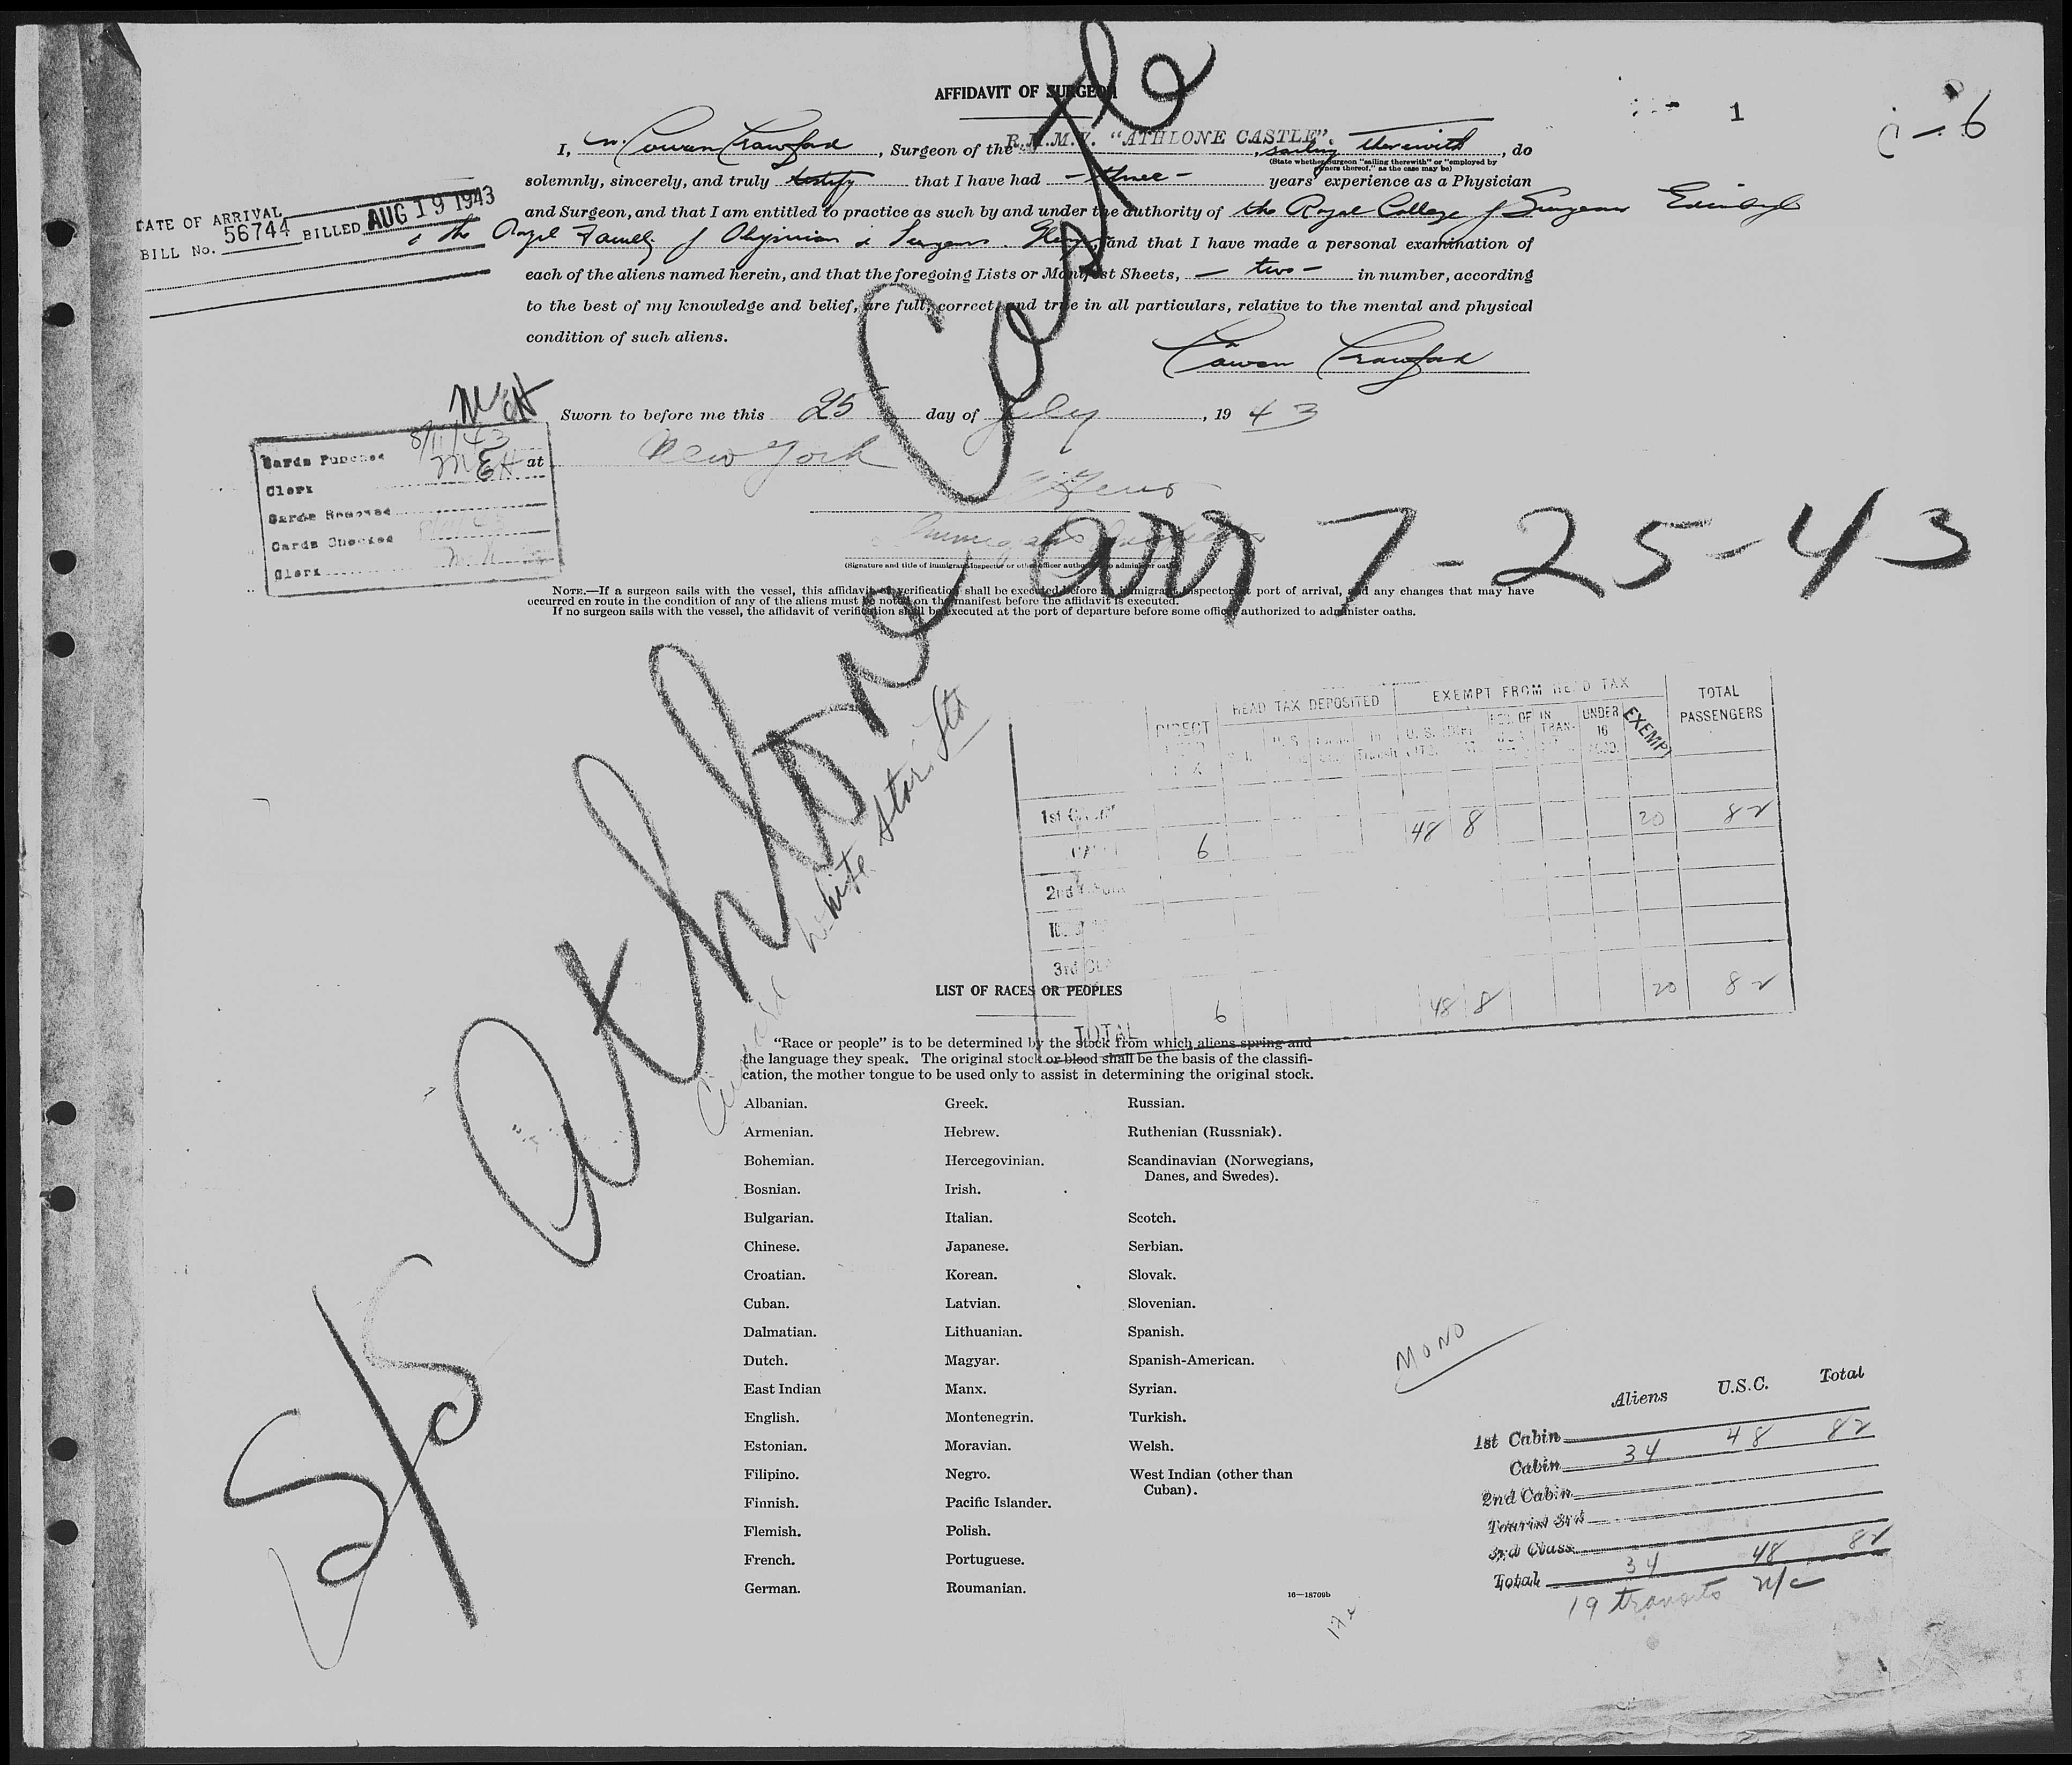 AFFIDAVIT OF SURGEON
1
6
I, Cowan Crawford, Surgeon of the R.M.M.V. "ATHLONE CASTLE", sailing therewith, do
(State whether surgeon "sailing therewith" or "employed by owners thereof," as the case may be)
solemnly, sincerely, and truly testify that I have had - three - years' experience as a Physician
and Surgeon, and that I am entitled to practice as such by and under the authority of the Royal College of Surgeons Edinburgh
& the Royal Faculty of Physicians & Surgeons, and that I have made a personal examination of
each of the aliens named herein, and that the foregoing Lists or Manifest Sheets, - two - in number, according
to the best of my knowledge and belief, are full, correct, and true in all particulars, relative to the mental and physical
condition of such aliens.
Cowan Crawford
DATE OF ARRIVAL
BILL No. 56744 BILLED AUG 19 1943
Sworn to before me this 25 day of July, 1943
at New York
MEH
Cards Punched 8/11/43
Clerk MEH
Cards Removed
Cards Checked
Clerk
(Signature and title of immigrant inspector or other officer authorized to administer oaths)
NOTE.—If a surgeon sails with the vessel, this affidavit of verification shall be executed before an immigrant inspector at port of arrival, and any changes that may have
occurred en route in the condition of any of the aliens must be noted on the manifest before the affidavit is executed.
If no surgeon sails with the vessel, the affidavit of verification shall be executed at the port of departure before some officer authorized to administer oaths.
S/S Athlone Castle
arr 7-25-43
Cunard White Star Ltd
DIRECT HEAD TAX
HEAD TAX DEPOSITED
EXEMPT FROM HEAD TAX
TOTAL PASSENGERS
UNDER 16
EXEMPT
1st
6 48 8 20 82
2nd
3rd
TOTAL 6 48 8 20 82
LIST OF RACES OR PEOPLES
"Race or people" is to be determined by the stock from which aliens spring and
the language they speak. The original stock or blood shall be the basis of the classifi-
cation, the mother tongue to be used only to assist in determining the original stock.
Albanian. Greek. Russian.
Armenian. Hebrew. Ruthenian (Russniak).
Bohemian. Hercegovinian. Scandinavian (Norwegians,
Danes, and Swedes).
Bosnian. Irish.
Bulgarian. Italian. Scotch.
Chinese. Japanese. Serbian.
Croatian. Korean. Slovak.
Cuban. Latvian. Slovenian.
Dalmatian. Lithuanian. Spanish.
Dutch. Magyar. Spanish-American.
East Indian Manx. Syrian.
English. Montenegrin. Turkish.
Estonian. Moravian. Welsh.
Filipino. Negro. West Indian (other than
Cuban).
Finnish. Pacific Islander.
Flemish. Polish.
French. Portuguese.
German. Roumanian.
16—18709b
MONO
Aliens U.S.C. Total
1st Cabin
Cabin 34 48 82
2nd Cabin
Tourist 3rd
3rd Class
Total 34 48 82
19 transits n/c